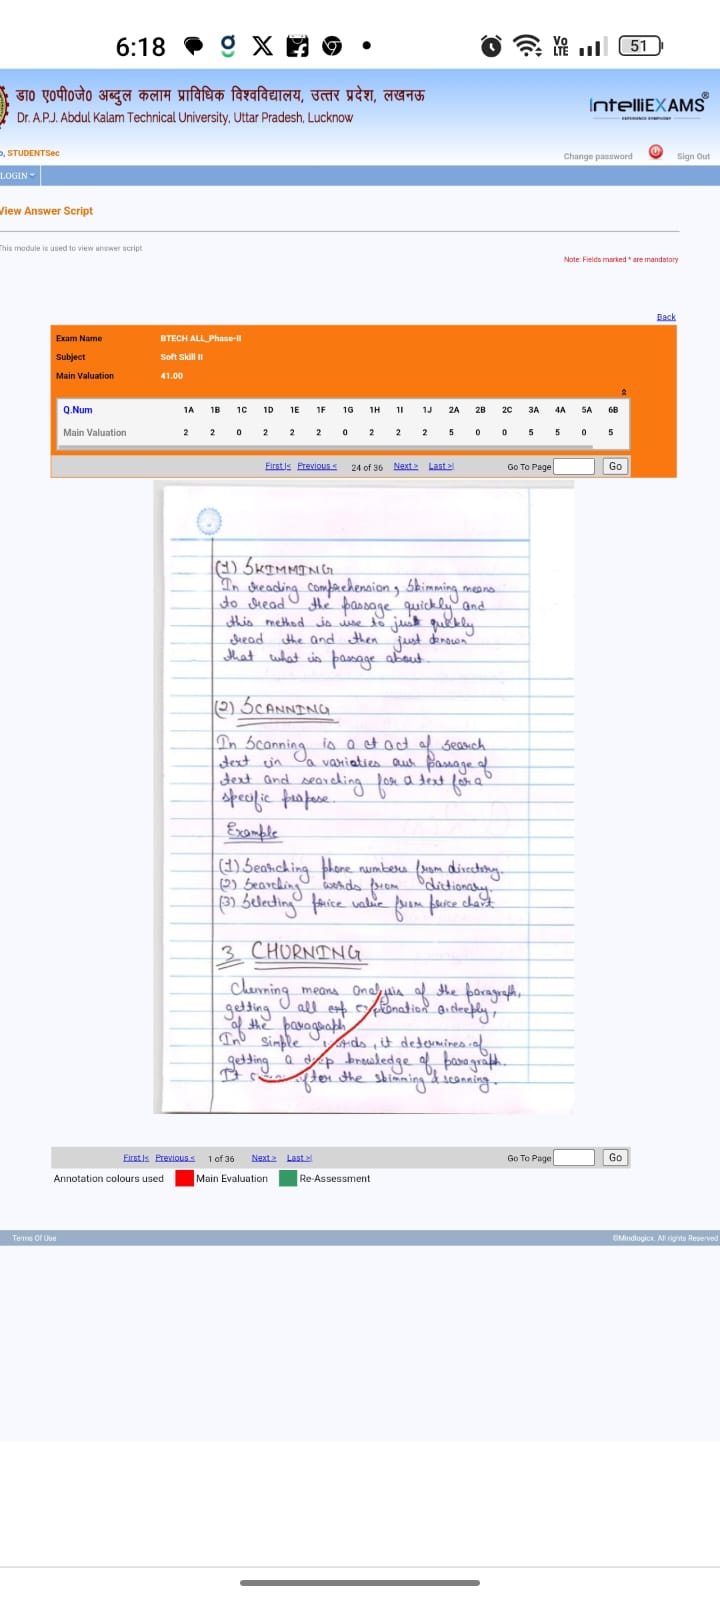 6:18
Vo LTE
51
डा० ए०पी०जे० अब्दुल कलाम प्राविधिक विश्वविद्यालय, उत्तर प्रदेश, लखनऊ
Dr. A.P.J. Abdul Kalam Technical University, Uttar Pradesh, Lucknow
IntelliEXAMS®
, STUDENTSec
Change password
Sign Out
LOGIN
View Answer Script
This module is used to view answer script
Note: Fields marked * are mandatory
Back
Exam Name BTECH ALL_Phase-II
Subject Soft Skill II
Main Valuation 41.00
Q.Num 1A 1B 1C 1D 1E 1F 1G 1H 1I 1J 2A 2B 2C 3A 4A 5A 6B
Main Valuation 2 2 0 2 2 2 0 2 2 2 5 0 0 5 5 0 5
First|< Previous < 24 of 36 Next > Last >| Go To Page Go
(1) SKIMMING
In reading comprehension, Skimming means
to read the passage quickly and
this method is use to just quickly
read the and then just
that what is passage about.
(2) SCANNING
In Scanning is a act of search
text in a varieties passage of
text and searching for a text for a
specific
Example
(1) Searching phone numbers from directory.
(2) Searching words from dictionary.
(3) Selecting price value from price chart
3 CHURNING
Churning means Analysis of the paragraph,
getting all explanation deeply,
of the paragraph
In simple words, it determines of
getting a deep knowledge of paragraph.
It after the skimming & scanning.
First|< Previous < 1 of 36 Next > Last >| Go To Page Go
Annotation colours used Main Evaluation Re-Assessment
Terms Of Use
©Mindlogicx. All rights Reserved